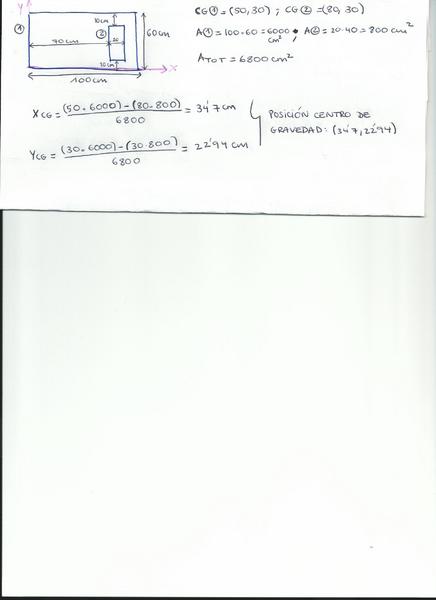 Y
① 10cm
② 20
70cm
10cm
60cm
X
100cm
CG① = (50,30) ; CG② = (80,30)
A① = 100·60 = 6000 cm² ; A② = 20·40 = 800 cm²
ATOT = 6800 cm²
XCG = (50·6000) - (80·800) / 6800 = 34'7 cm
YCG = (30·6000) - (30·800) / 6800 = 22'94 cm
POSICIÓN CENTRO DE
GRAVEDAD: (34'7, 22'94)